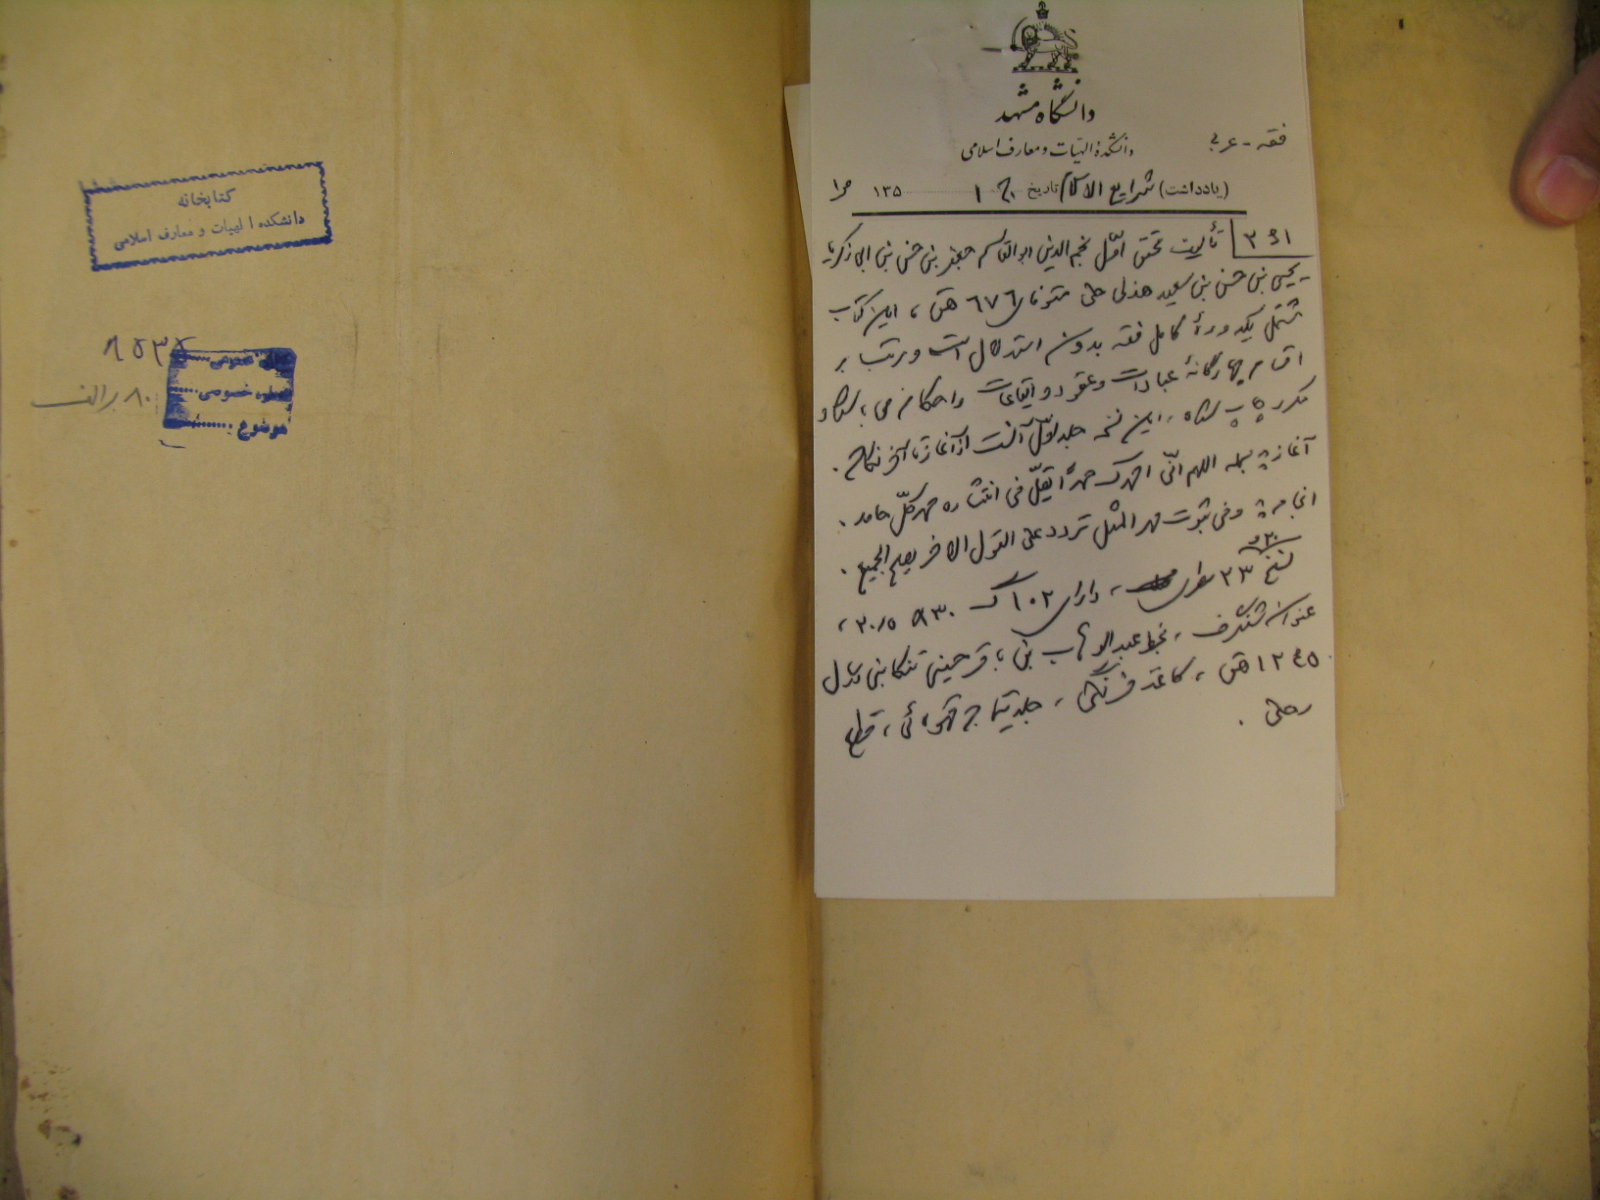 کتابخانه
دانشکده الهیات و معارف اسلامی
شماره عمومی
شماره خصوصی
موضوع
دانشگاه مشهد
دانشکدهٔ الهیات و معارف اسلامی
فقه - عربی
(یادداشت) شرایع الاسلام تاریخ ج ۱ ۱۳۵
تألیف محقق اوّل نجم الدین ابوالقاسم جعفر بن حسن بن ابی زکریا
یحیی بن حسن بن سعید هذلی حلی متوفای ۶۷۶ هق ، این کتاب
مشتمل یکدورهٔ کامل فقه بدون استدلال است و مرتب بر
اقسام چهارگانهٔ عبادات و عقود و ایقاعات و احکام می باشد و
مکرر چاپ شده ، این نسخه جلد اوّل آنست از آغاز تا آخر نکاح .
آغاز : بسمله اللهم انّی احمدک حمداً یقلّ فی انتشاره حمد کلّ حامد .
انجام : و فی ثبوت مهر المثل تردد علی القول الاخر یصح الجمیع .
نسخ ۲۳ سطری ، دارای ۱۰۲ گ
عنوان شنگرف ، بخط عبدالوهاب بن باقر حسینی تنکابنی بسال
۱۲۴۵ هق ، کاغذ فرنگی ، جلد تیماج قهوه ئی ، قطع
رحلی .